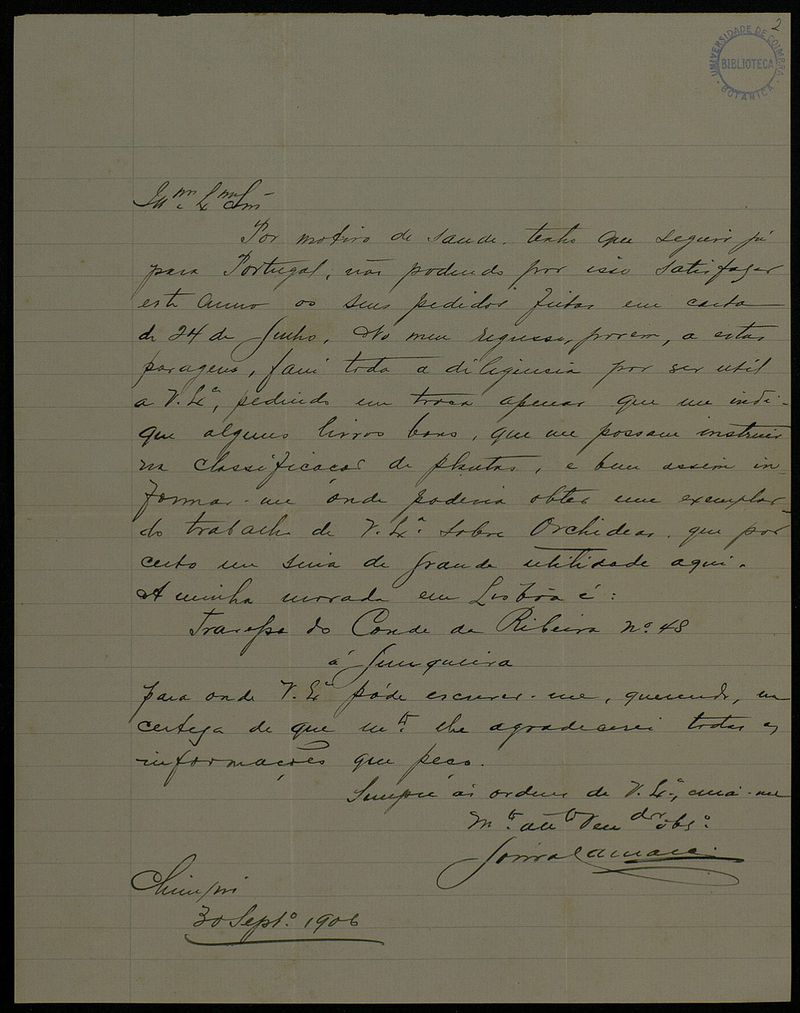 2
UNIVERSIDADE DE COIMBRA
BIBLIOTECA
BOTANICA
Illmo. Exmo Snr
Por motivo de saude, tenho que seguir já
para Portugal, não podendo por isso satisfazer
este anno os seus pedidos feitos em carta
de 24 de Junho. No meu regresso, porem, a estas
paragens, farei toda a diligencia por ser util
a V. Exa, pedindo em troca apenas que me indi-
que alguns livros bons, que me possam instruir
na classificação de plantas, e bem assim in-
formar-me onde poderia obter um exemplar
do trabalho de V. Exa. sobre Orchideas, que por
certo me seria de grande utilidade aqui.
A minha morada em Lisbôa é:
Travessa do Conde da Ribeira no. 48
á Junqueira
para onde V. Exa póde escrever-me, querendo, na
certeza de que mto. lhe agradecerei todas as
informações que peço.
Sempre ás ordens de V. Exa,
Mto. atto Ven dor obgo.
Camara
30 Septo. 1906